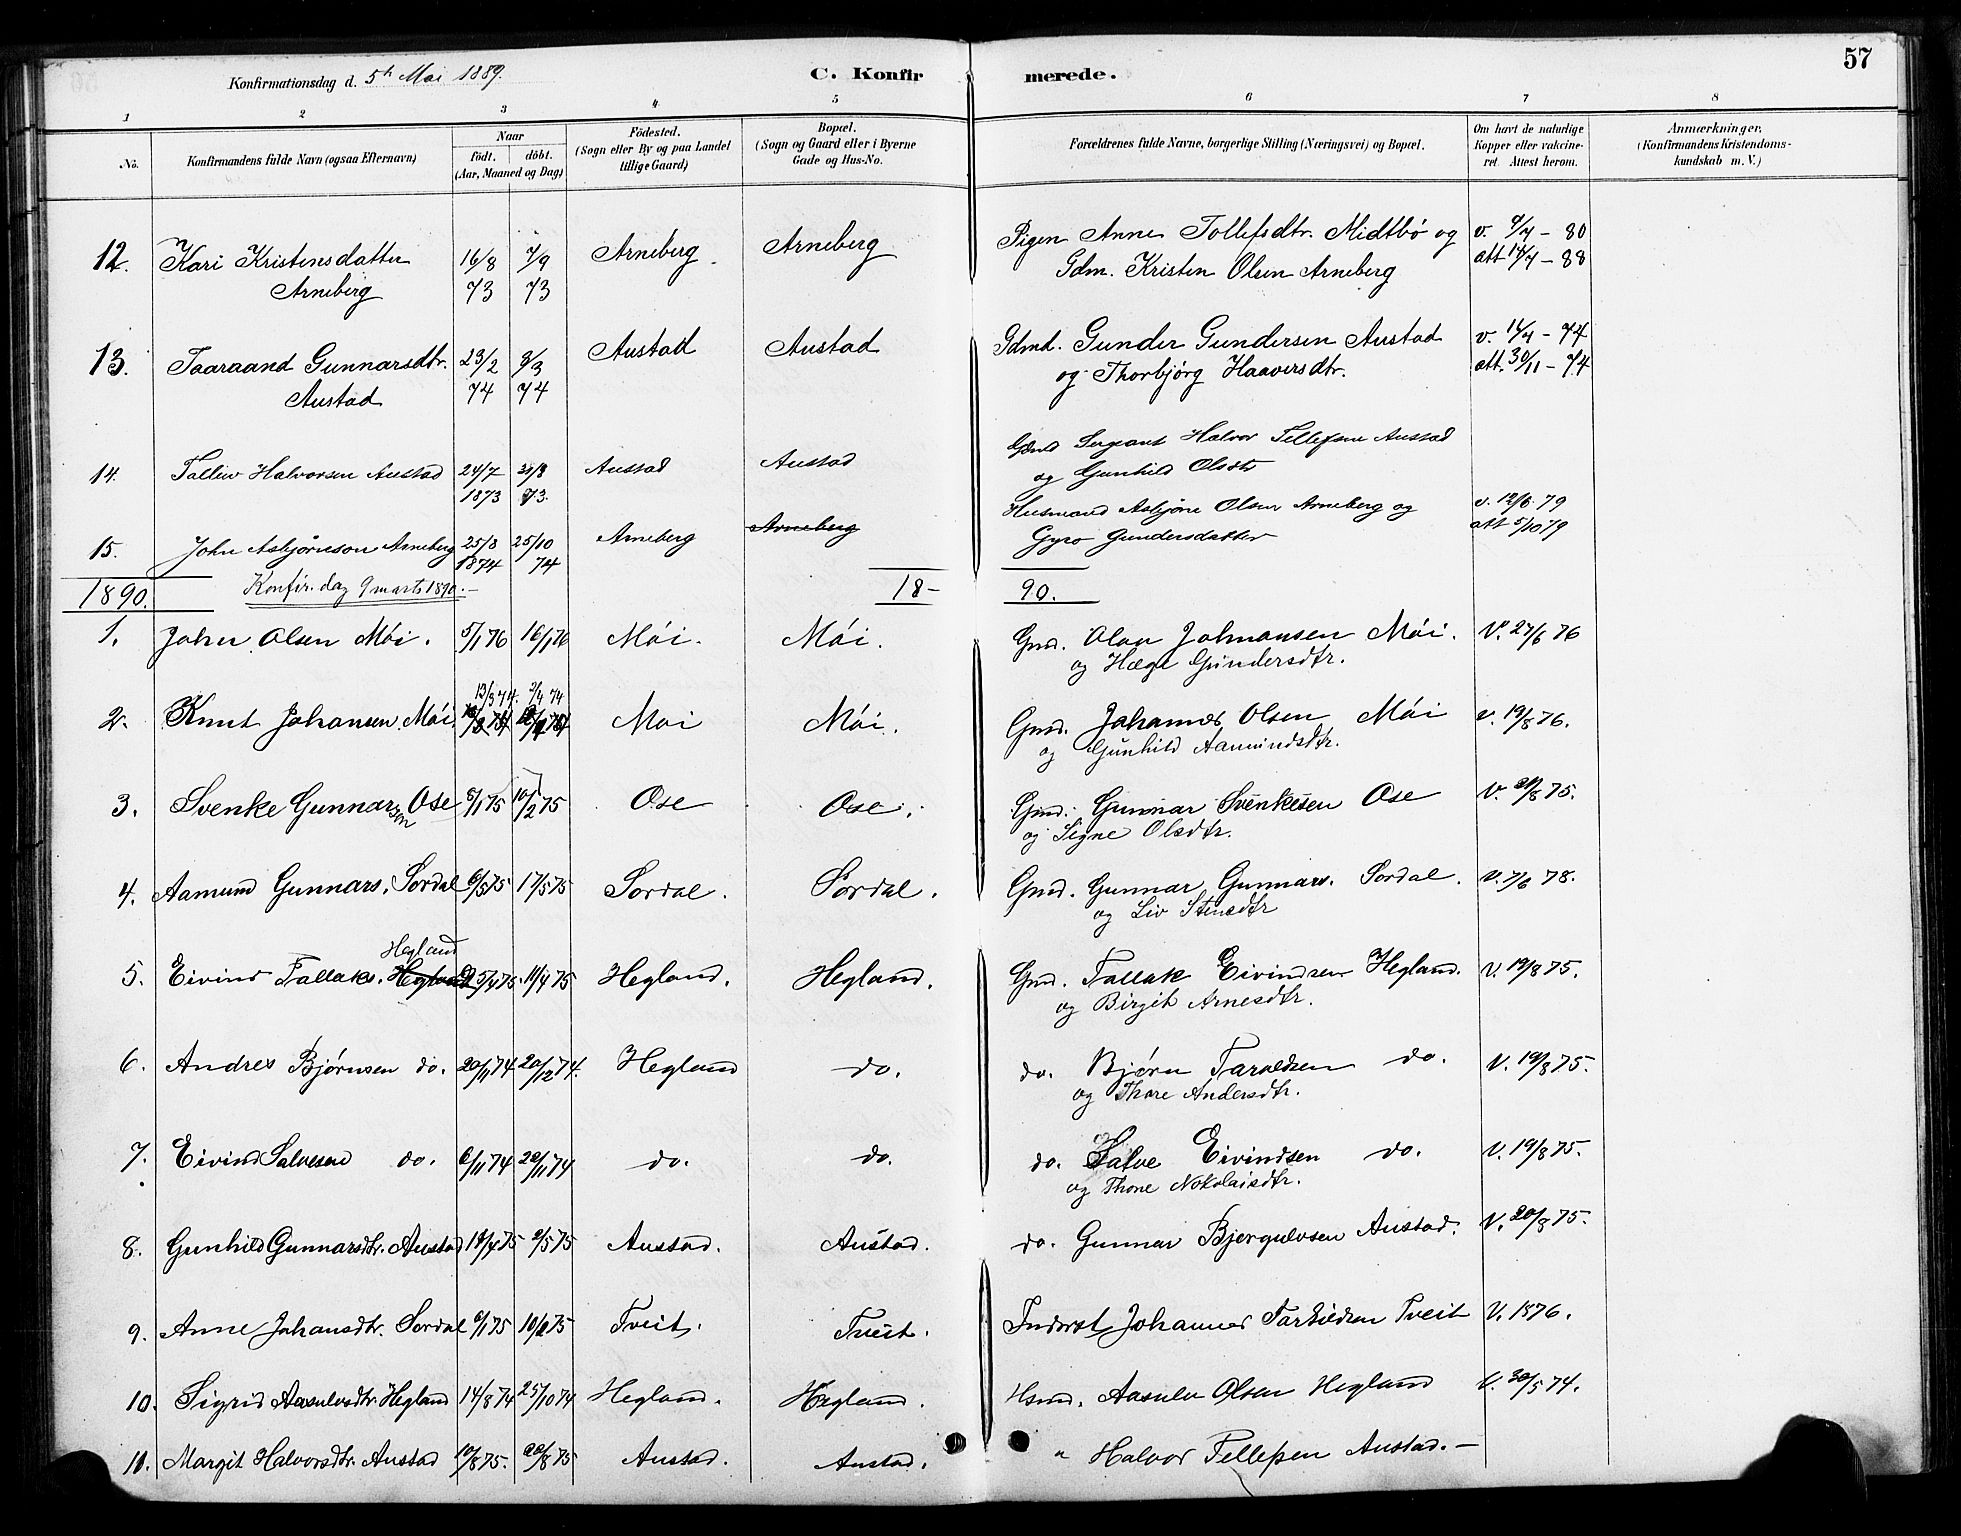 57
Konfirmationsdag d. 5th Mai 1889.
C. Konfirmerede.
1 2 3 4 5 6 7 8
No.
Konfirmandens fulde Navn (ogsaa Efternavn)
Naar
födt. döbt.
(Aar, Maaned og Dag)
Födested.
(Sogn eller By og paa Landet
tillige Gaard)
Bopæl.
(Sogn og Gaard eller i Byerne
Gade og Hus-No.
Forældrenes fulde Navne, borgerlige Stilling (Næringsvei) og Bopæl.
Om havt de naturlige
Kopper eller vakcine-
ret. Attest herom.
Anmærkninger,
(Konfirmandens Kristendoms-
kundskab m. V.)
12. Kari Kristensdatter 16/8 7/9 Arneberg Arneberg Pigen Anne Tollefsdtr. Midtbø og v. 9/7 - 80
Arneberg 73 73 Gdm. Kristen Olsen Arneberg att 14/7 - 88
13. Taaraand Gunnarsdtr. 23/2 8/3 Austad Austad Gdmd. Gunder Gundersen Austad v. 11/7 - 74
Austad 74 74 og Thorbjørg Haaversdtr. att. 30/11 - 74
14. Talliev Halvorsen Austad 24/7 31/8 Austad Austad Sergeant Halvor Tellefsen Austad
1873 73. og Gunhild Olsdtr
15. John Asbjørnson Arneberg 25/8 25/10 Arneberg Arneberg Husmand Asbjørn Olsen Arneberg og v. 12/6 79
1874 74 Gyro Gundersdatter att 5/10 79
1890. Konfir. dag 9 marts 1890.- 18- 90.
1. Johan Olsen Mói. 5/1 76 16/1 76 Mói. Mói. Gmd. Olav Johansen Mói. V. 27/6 76
og Hæge Gundersdtr.
13/3 74. 2/4 74
2. Knut Johansen Mói. Moi Mói. Gmd. Johannes Olsen Mói v. 19/8 76.
og Gunhild Aamundsdtr.
3. Svenke Gunnarssen Ose 5/1 75 10/2 75 Ose Ose. Gmd. Gunnar Svenkesen Ose V. 21/8 75.
og Signe Olsdtr.
4. Aamund Gunnars. Sordal 6/5 75 17/5 75 Sordal. Sordal. Gmd. Gunnar Gunnars. Sordal. V. 7/6 78.
og Liv Stensdtr
Hegland
5. Eivind Tallaks. Hegland 5/4 75. 11/4 75 Hegland. Hegland. Gmd. Tallak Eivindsen Hegland. V. 19/8 75.
og Birgit Arnesdtr.
6. Andres Bjørnsen do. 20/11 74 20/12 74. Hegland do. do. Bjørn Taraldsen do. V. 19/8 75.
og Thore Andersdtr.
7. Eivind Salvesen do. 6/11 74 22/11 74 do. do. do. Salve Eivindsen do. V. 19/8 75.
og Thone Nokolaisdtr.
8. Gunhild Gunnarsdtr. Austad 14/4 75 2/5 75 Austad. Austad. do. Gunnar Bjergulvsen Austad. V. 20/8 75.
9. Anne Johansdtr. Sordal 6/1 75 10/2 75 Tveit. Tveit. Inderst Johannes Tarkildsen Tveit V. 1876.
10. Sigrid Aasulvsdtr. Hegland 14/8 74 25/10 74 Hegland. Hegland. Hsmd. Aasulv Olsen Hegland V. 30/5 74.
11. Margit Halvorsdtr. Austad 10/8 75. 22/8 75 Austad. Austad. " Halvor Tellefsen Austad.-